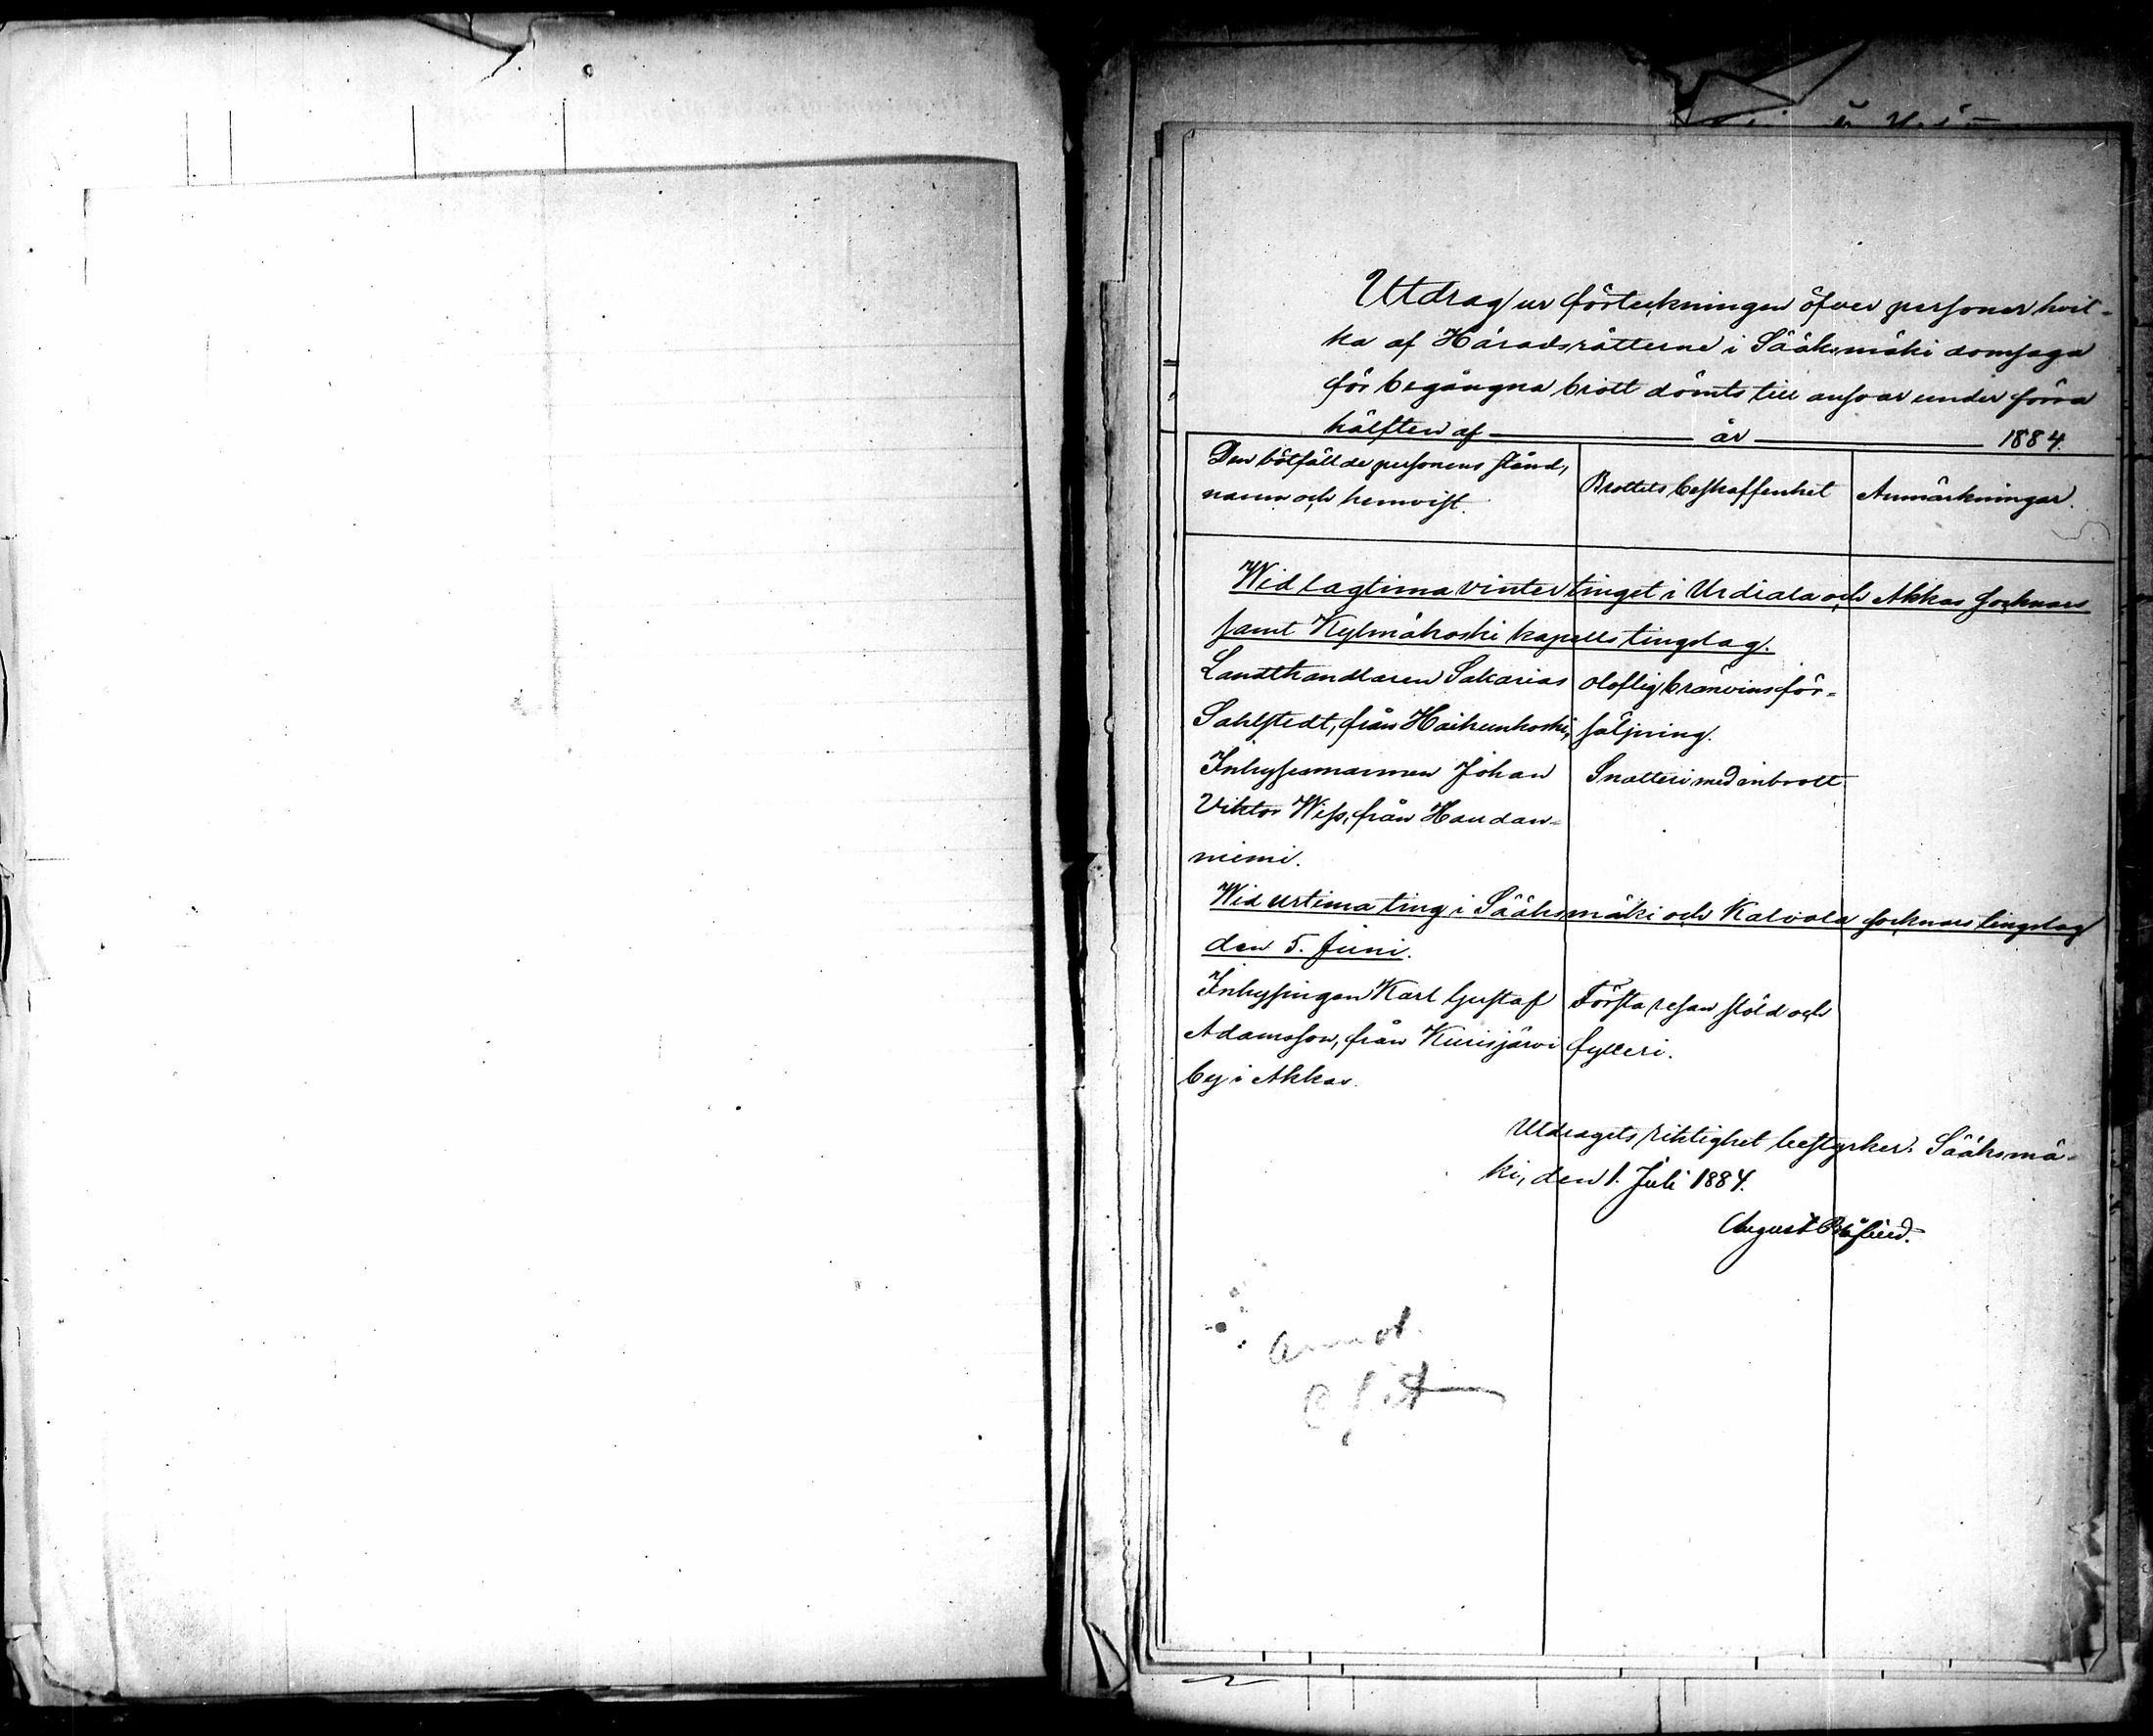 Utdrag ur förteckningen öfver personer hvil-
ka af Häradsrätterne i Sääksmäki domsaga
för begångna brott dömts till ansvar under förra
hälften af år 1884.
Den bötfällde personens stånd,
namn och hemvist.
Brottets beskaffenhet
Anmärkningar.
Wid lagtima vintertinget i Urdiala och Akkas socknars
samt Kylmäkoski kapells tingslag.
Landthandlaren Sakarias
Sahlstedt, från Haihunkoski,
oloflig bränvinsför-
säljning.
Inhysesmannen Johan
Viktor Wiss, från Haudan-
niemi.
Snatteri med inbrott.
Wid urtima ting i Sääksmäki och Kalvola socknars tingslag
den 5. Juni.
Inhysingen Karl Gustaf
Adamsson, från Kurisjärvi
by i Akkas.
Första resan stöld och
fylleri.
Utdragets riktighet bestyrker. Sääksmä-
ki, den 1. Juli 1884.
August